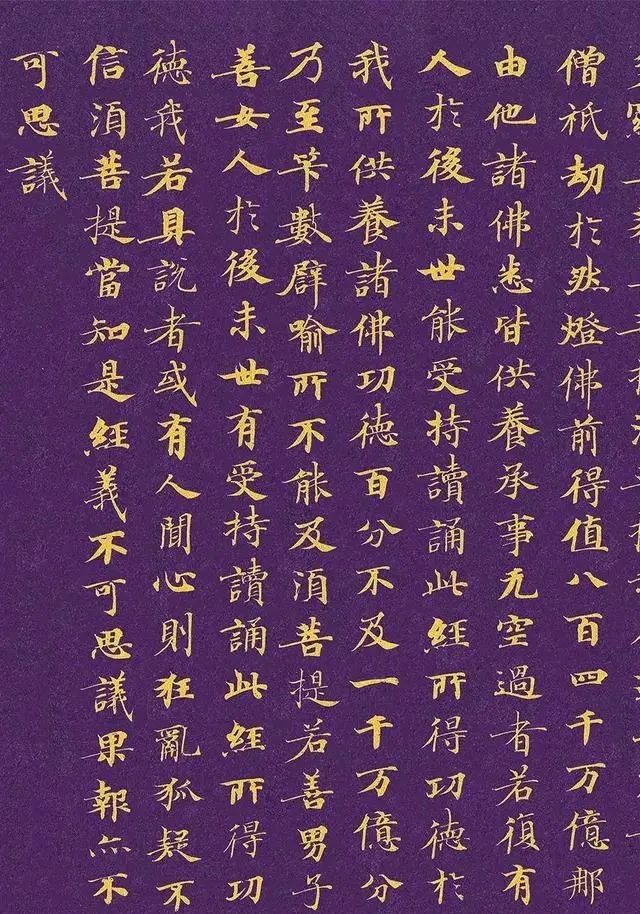 僧祇劫於然燈佛前得值八百四千万億那
由他諸佛悉皆供養承事无空過者若復有
人於後末世能受持讀誦此經所得功德於
我所供養諸佛功德百分不及一千万億分
乃至笇數辟喻所不能及須菩提若善男子
善女人於後末世有受持讀誦此經所得功
德我若具說者或有人聞心則狂亂狐疑不
信須菩提當知是經義不可思議果報亦不
可思議